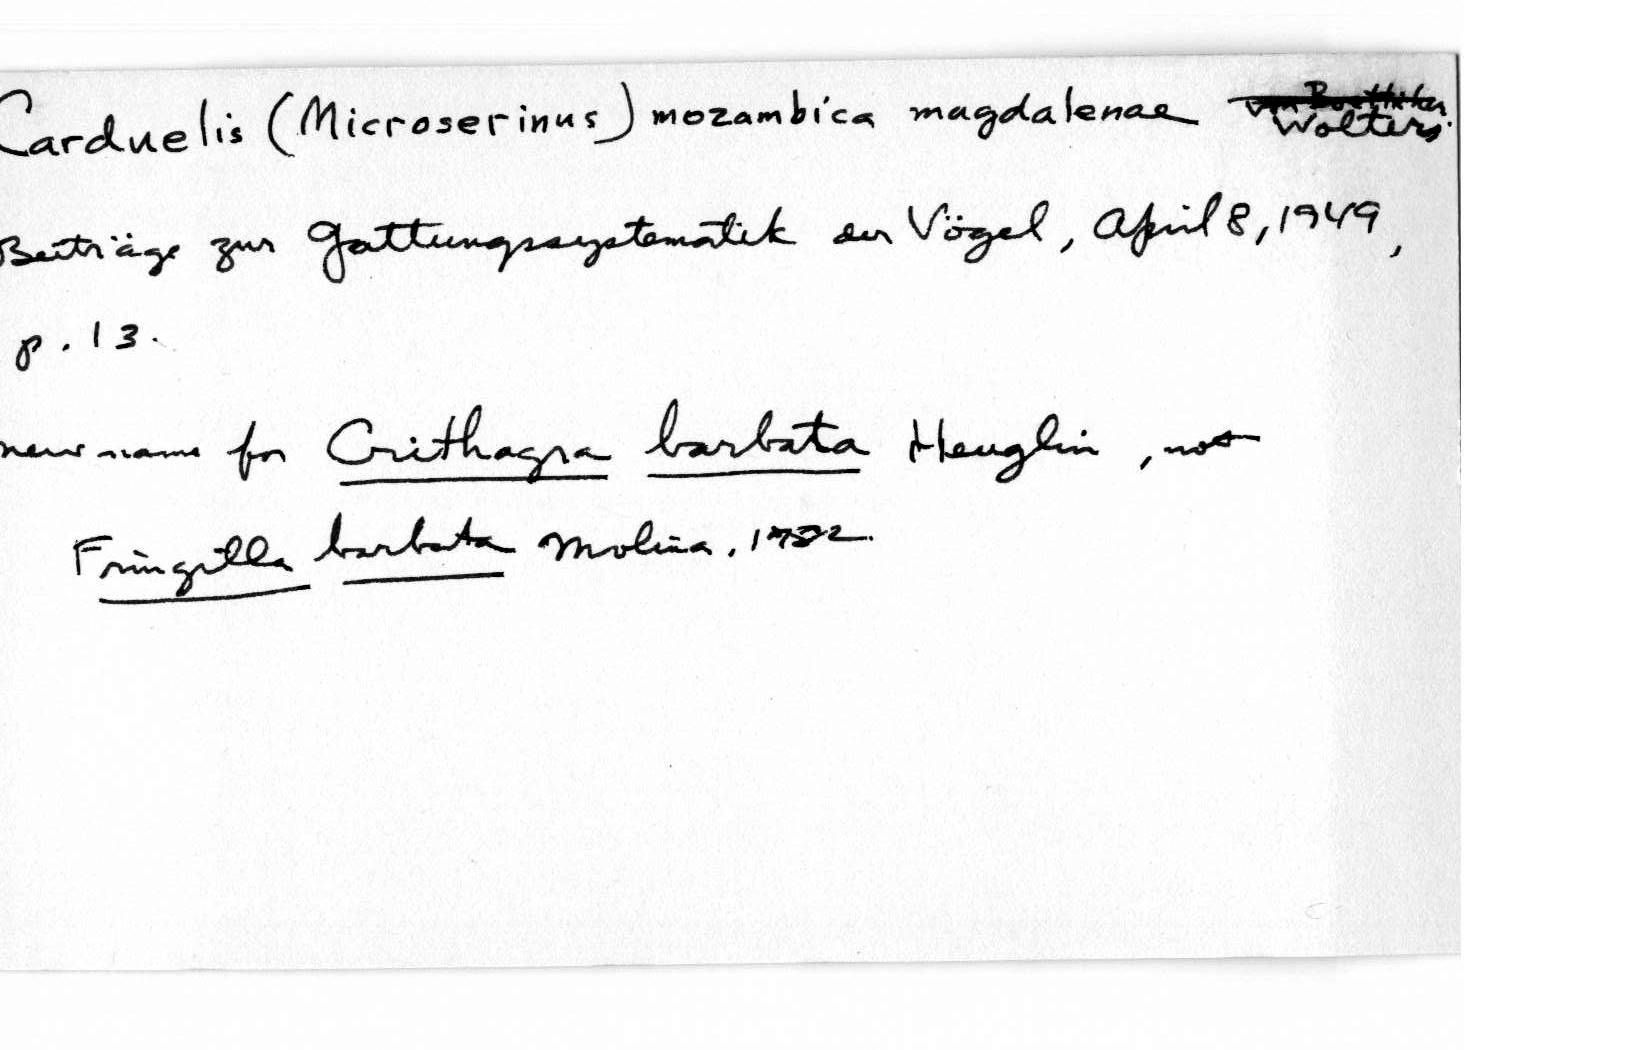 Carduelis (Microserinus) mozambica magdalenae von Boetticher
Wolters.
Beiträge zur Gattungssystematik der Vögel, April 8, 1949,
p. 13.
new name for Crithagra barbata Heuglin, not
Fringilla barbata Molina, 1782.